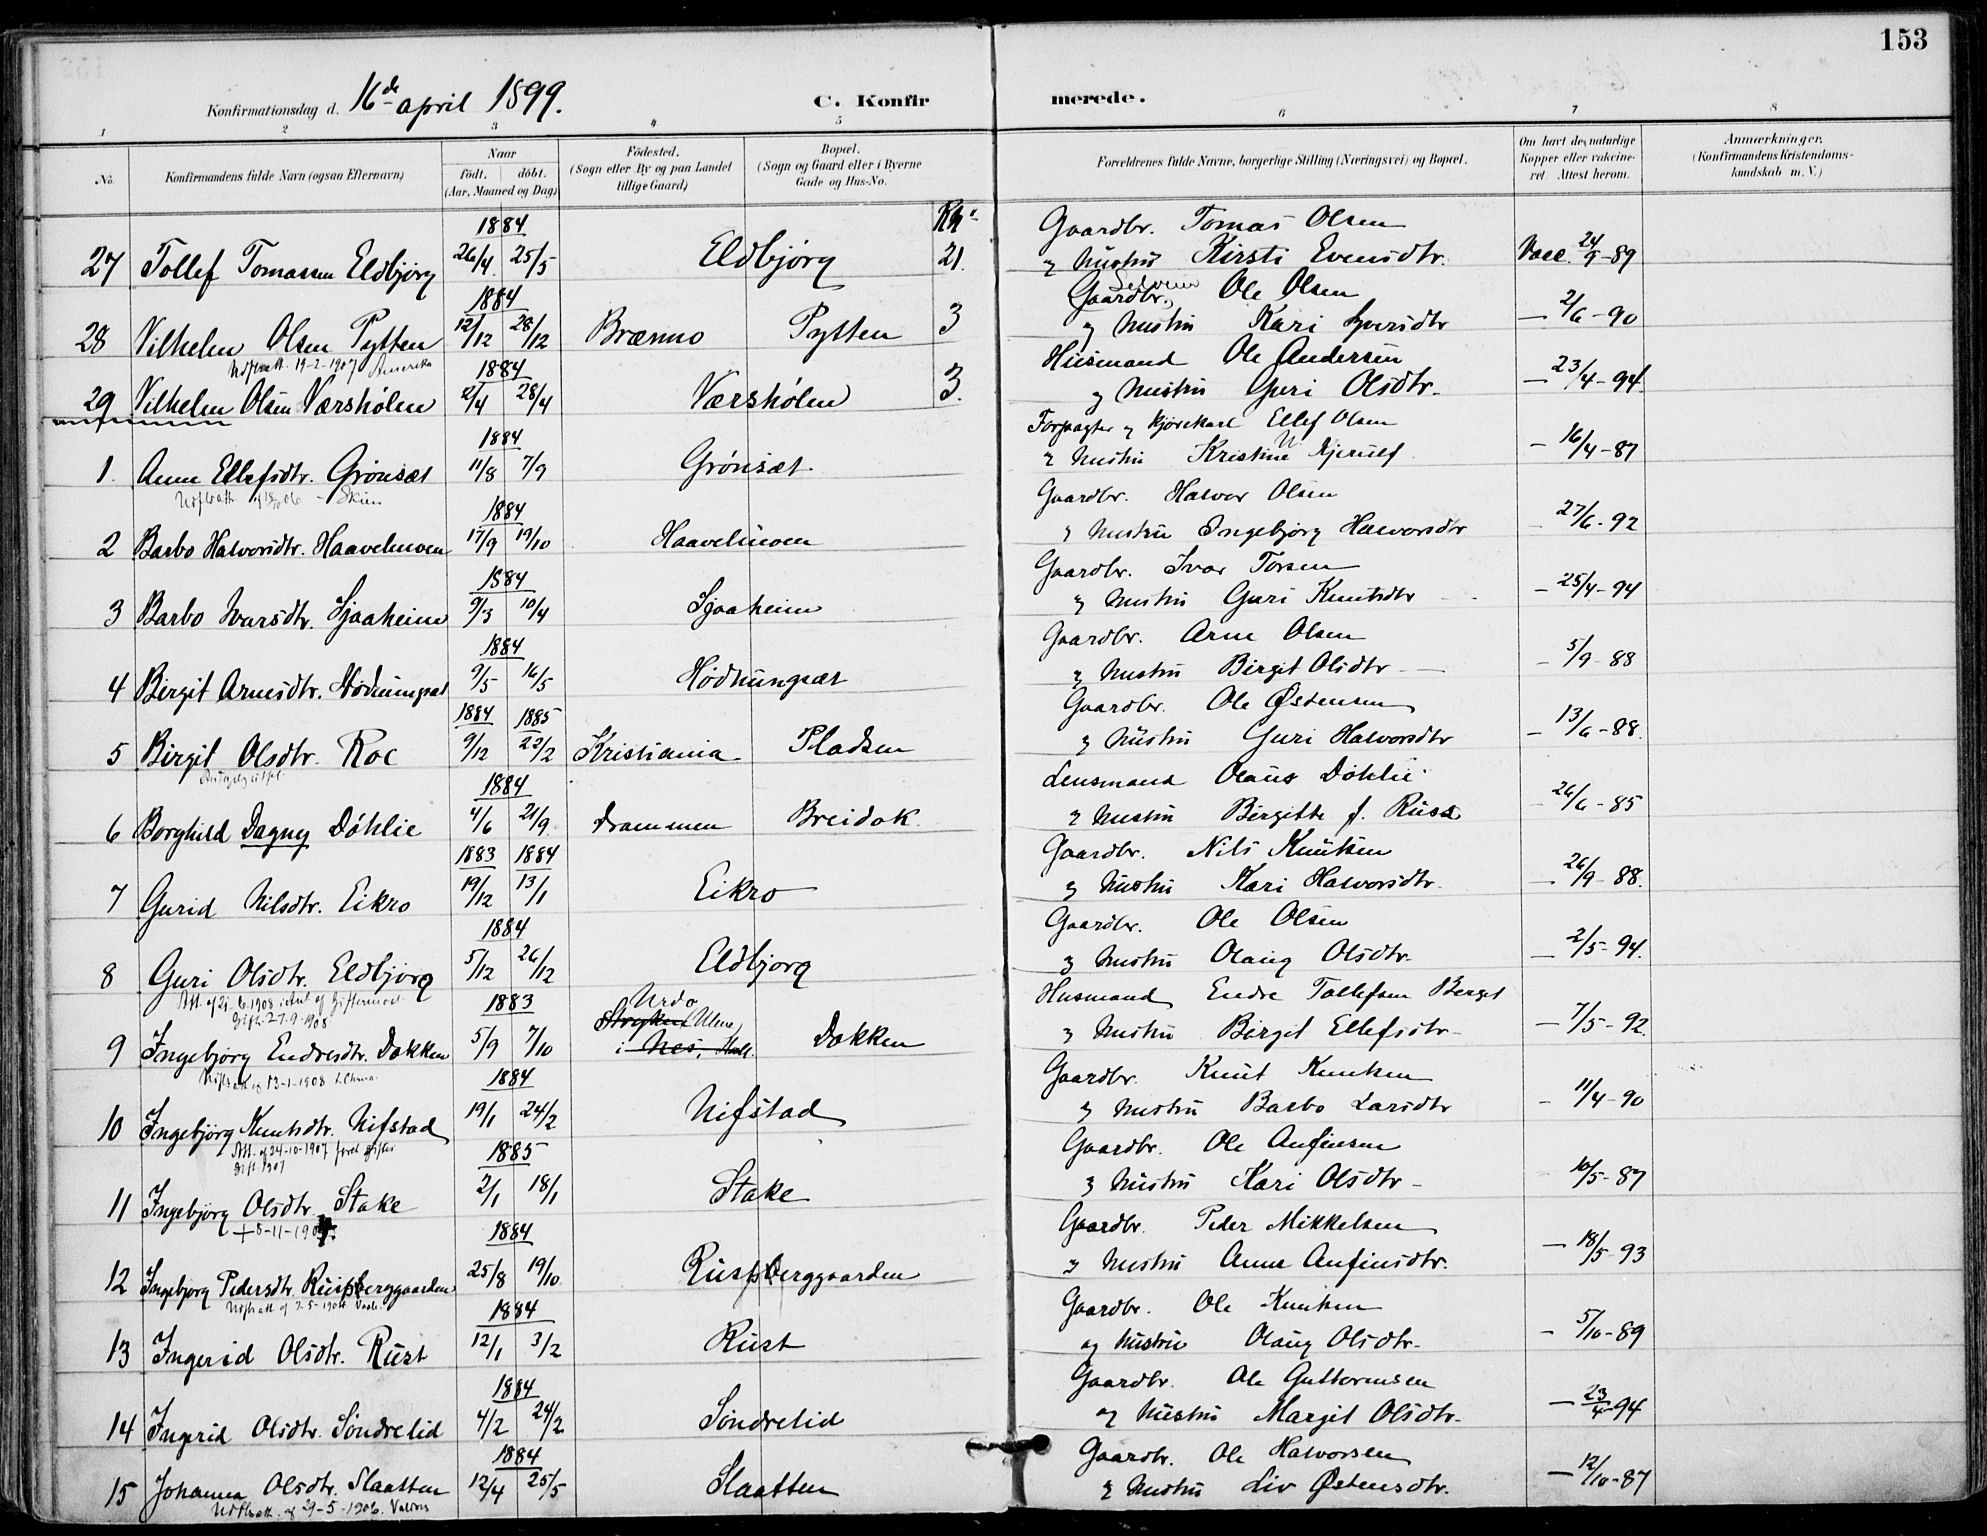 153
Konfirmationsdag d. 16de april 1899. C. Konfirmerede.
1 2 3 4 5 6 7 8
No. Konfirmandens fulde Navn (ogsaa Efternavn) Naar födt. döbt. (Aar, Maaned og Dag) Födested. (Sogn eller By og paa Landet tillige Gaard) Bopæl. (Sogn og Gaard eller i Byerne Gade og Hus-No. Forældrenes fulde Navne, borgerlige Stilling (Næringsvei) og Bopæl. Om havt de naturlige Kopper eller vakcineret. Attest herom. Anmærkninger. (Konfirmandens Kristendomskundskab m. V.)
1884 Gaardbr. Tomas Olsen
27 Tollef Tomassen Eldbjørg 26/4 25/5 Eldbjørg 21. og Hustru Kirsti Evensdtr. Vacc. 24/9-89
1884 Gaardbr. Ole Olsen
28 Vilhelm Olsen Pytten 12/12 28/12 Brænno Pytten 3 og Hustru Kari Iversdtr — 2/6-90
19-2-1907 Amerika 1884 Husmand Ole Andersen
29 Vilhelm Olsen Værshølen 2/4 28/4 Værshølen 3. og Hustru Guri Olsdtr. — 23/4-94
1884 Forpagter og Kjørekarl Ellef Olsen
1. Anne Ellefsdtr. Grönsæt 11/8 7/9 Grönsæt og Hustru Kristine Kjerulf — 16/4-87
1884 Gaardbr. Halvor Olsen
2 Barbo Halvorsdtr. Haavelmoen 17/9 19/10 Haavelmoen og Hustru Ingebjørg Halvorsdtr — 27/6-92
1884 Gaardbr. Ivar Torsen
3 Barbo Ivarsdtr. Sjaaheim 9/3 10/4 Sjaaheim og Hustru Guri Knutsdtr — 25/4-94
1884 Gaardbr. Arne Olsen
4 Birgit Arnesdtr. Hødnungsæt 9/5 16/5 Hødnungsæt og Hustru Birgit Olsdtr — 5/9-88
1884 1885 Gaardbr. Ole Østensen
5 Birgit Olsdtr. Roe 9/12 22/2 Kristiania Pladsen og Hustru Guri Halvorsdtr — 13/6-88.
1884 Lensmand Olaus Döhlie
6 Borghild Dagny Döhlie 4/6 21/9 Drammen Breidok og Hustru Birgitte f. Russ — 26/6-85
1883 1884 Gaardbr. Nils Knutsen
7 Gurid Nilsdtr. Eikro 19/12 13/1 Eikro og Hustru Kari Halvorsdtr. — 26/9-88.
1884 Gaardbr. Ole Olsen
8 Guri Olsdtr. Eldbjørg 5/12 26/12 Eldbjørg og Hustru Olaug Olsdtr. — 2/5-94.
Gift. 27-9-1908 1883 Urdo Husmand Endre Tollefsen Berget
9 Ingebjørg Endresdtr. Dokken 5/9 7/10 i Nes, Dokken og Hustru Birgit Ellefsdtr — 7/5-92.
13-1-1908 1884 Gaardbr. Knut Knutsen
10 Ingebjørg Knutsdtr. Nifstad 19/1 24/2 Nifstad og Hustru Barbo Larsdtr — 11/4-90
Att. af 24-10-1907
gift 1907 1885 Gaardbr. Ole Anfinsen
11 Ingebjørg Olsdtr. Stake 2/1 18/1 Stake og Hustru Kari Olsdtr — 10/5-87
+8-11-190 1884 Gaardbr. Peder Mikkelsen
12 Ingebjørg Pedersdtr. Rustberggaarden 25/8 19/10 Rustberggaarden og Hustru Anne Anfinsdtr. — 18/5-93
1884 Gaardbr. Ole Knutsen
13 Ingerid Olsdtr. Rust 12/1 3/2 Rust og Hustru Olaug Olsdtr. — 5/10-89
1884 Gaardbr. Ole Guttormsen
14 Ingerid Olsdtr. Söndrelid 4/2 24/2 Söndrelid og Hustru Margit Olsdtr. — 23/4-94
1884 Gaardbr. Ole Halvorsen
15 Johanna Olsdtr. Slaatten 12/4 25/5 Slaatten og Hustru Liv Østensdtr. — 12/10-87
29-5-1906. Valdres